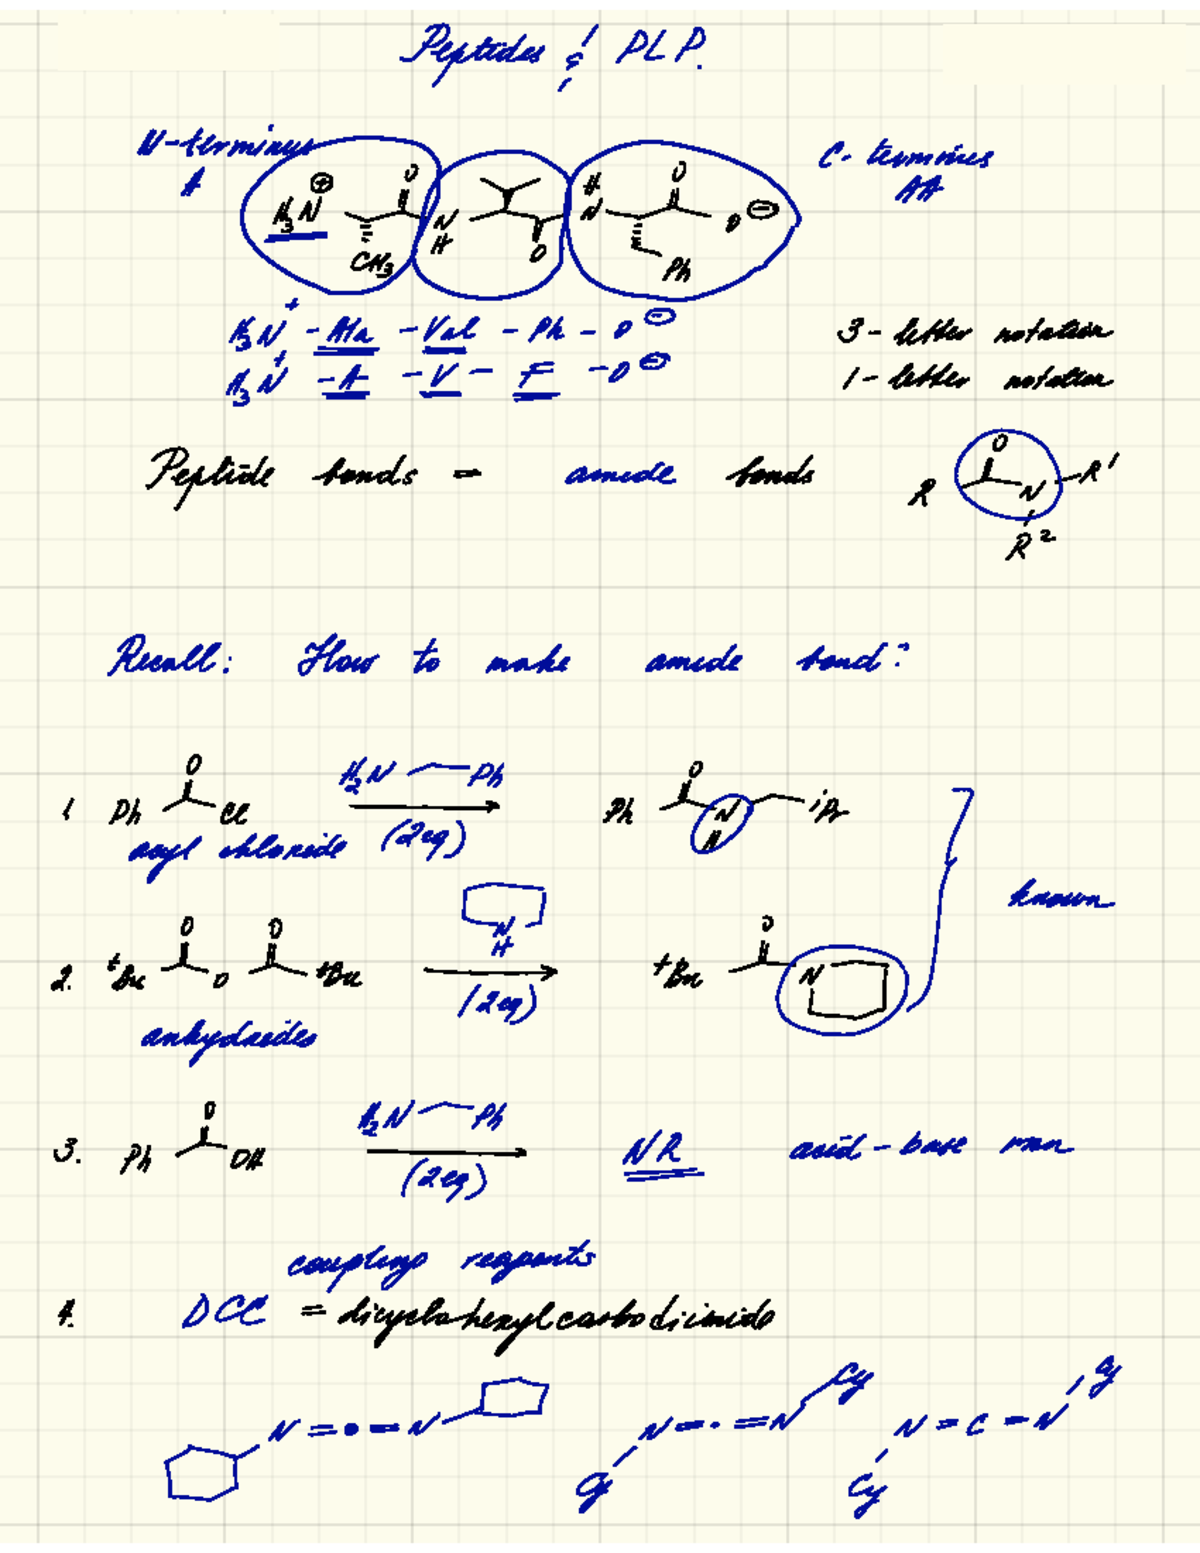 Peptides & PLP.
N-terminus
A
C-terminus
AA
H₃N⊕ O N H O H N O O⊖
CH₃ Ph
H₃N⁺ - Ala - Val - Ph - O⊖ 3-letter notation
H₃N⁺ - A - V - F - O⊖ 1-letter notation
Peptide bonds = amide bonds R O N R' R²
Recall: How to make amide bond?
1. Ph O Cl H₂N Ph (2eq) Ph O N H iPr
acyl chloride
known
2. ᵗBu O O O ᵗBu N H (2eq) ᵗBu O N
anhydrides
3. Ph O OH H₂N Ph (2eq) NR acid-base rxn
coupling reagents
4. DCC = dicyclohexylcarbodiimide
N = • = N N = · = N Cy Cy N = C = N Cy Cy